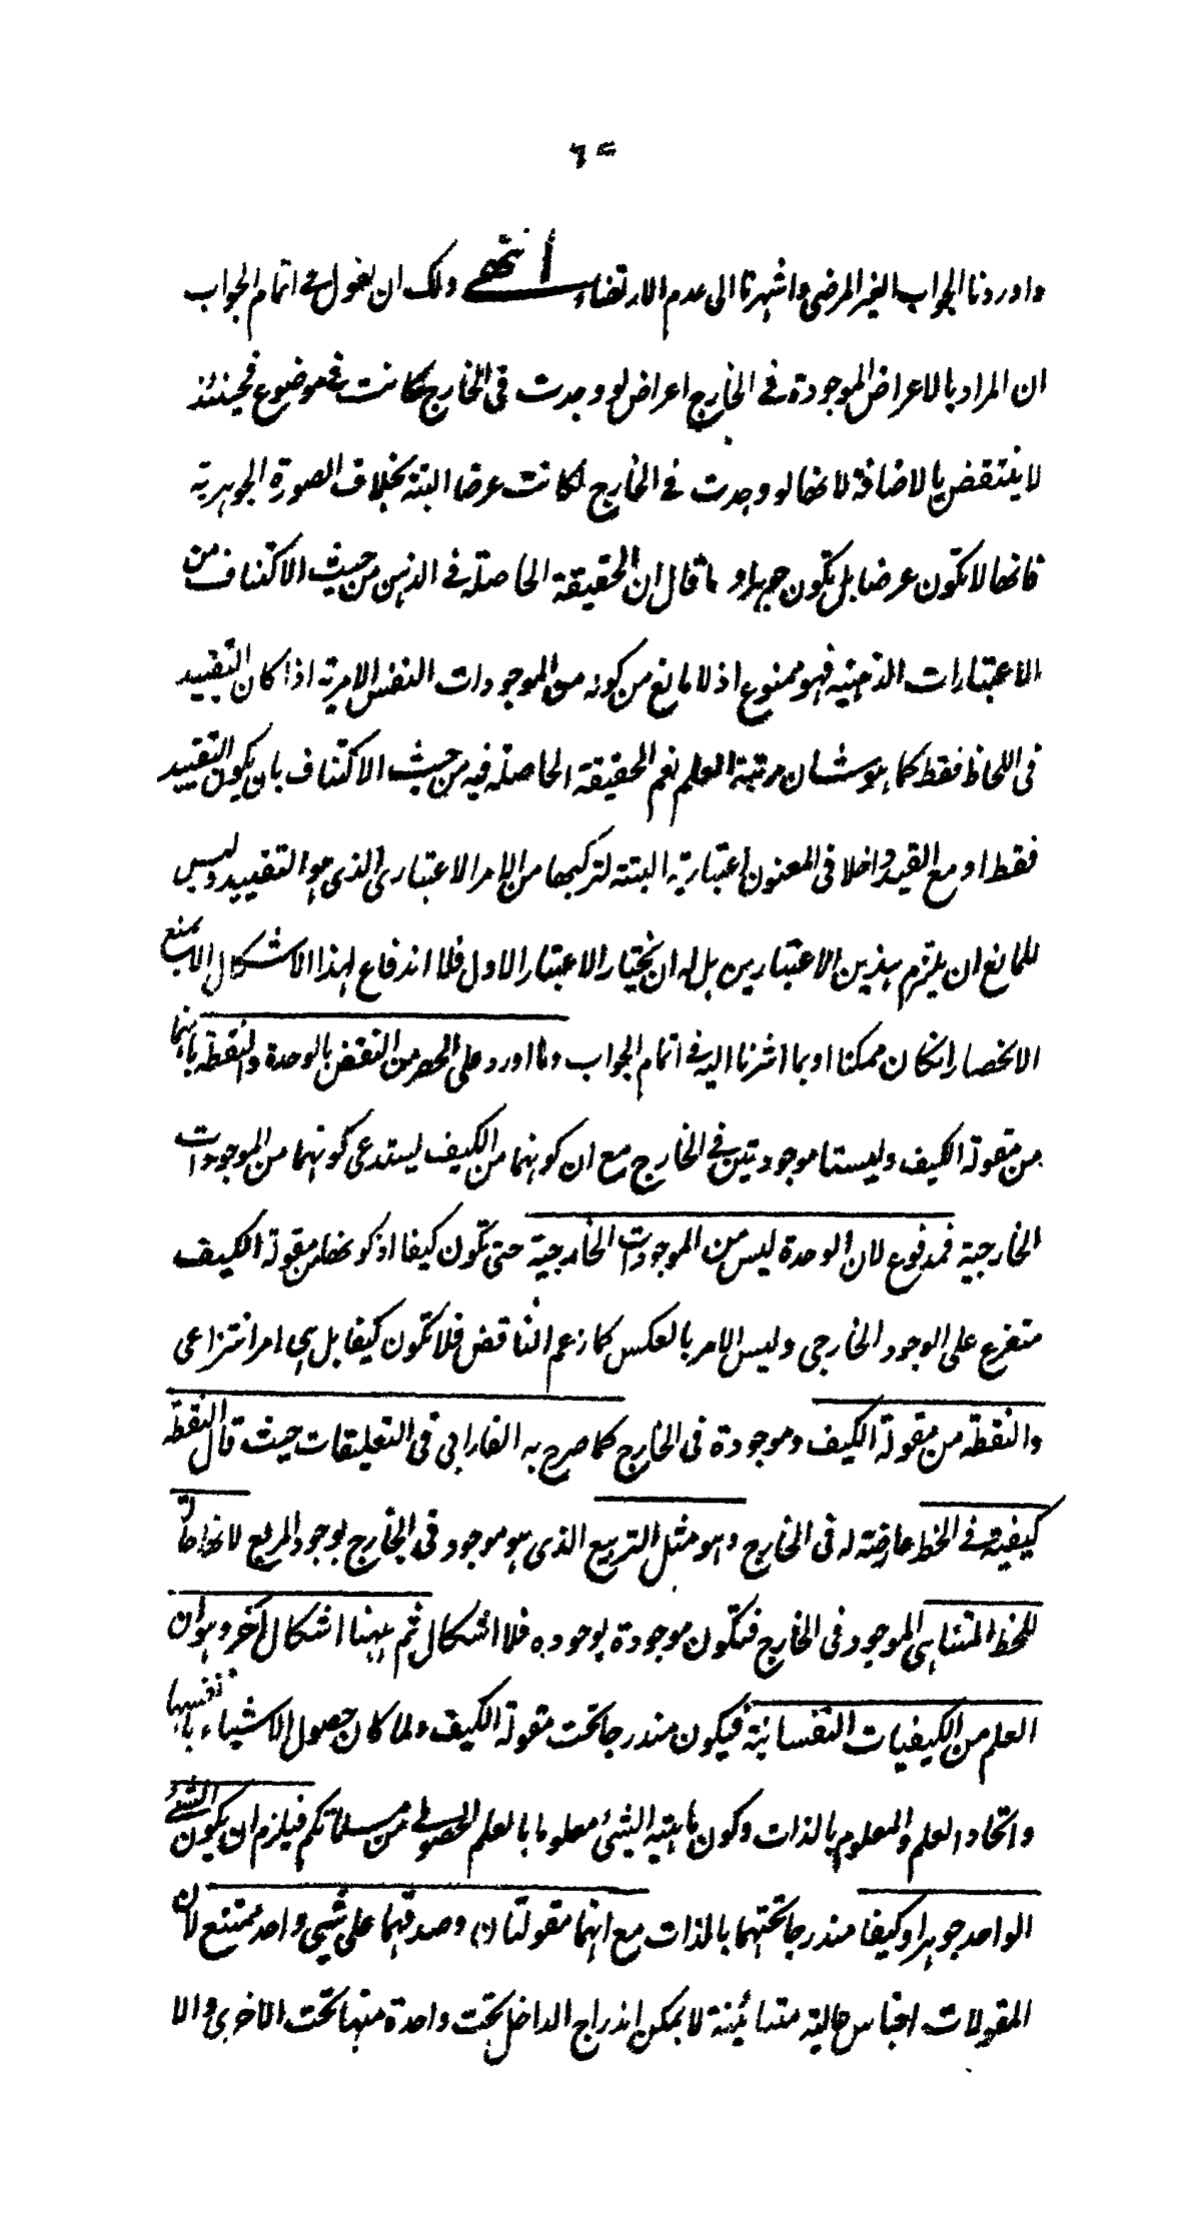 ٦٥
واوردنا الجواب الغير المرضى واشهرنا الى عدم الارتضاء انتهى ولك ان نقول فى اتمام الجواب
ان المراد بالاعراض الموجودة فى الخارج اعراض لو وجدت فى الخارج لكانت فى موضوع فحينئذ
لا ينتقض بالاضافة لانها لو وجدت فى الخارج لكانت عرضا البتة بخلاف الصورة الجوهرية
فانها لا تكون عرضا بل تكون جوهرا و ما قال ان الحقيقة الحاصلة فى الذهن من حيث الاكتناف من
الاعتبارات الذهنية فهو ممنوع اذ لا مانع من كونه من الموجودات النفس الامرية اذا كان التقييد
فى اللحاظ فقط كما هو شان مرتبة العلم نعم الحقيقة الحاصلة فيه من حيث الاكتناف بان يكون التقييد
فقط او مع القيد داخلا فى المعنون اعتبارية البتة لتركبها من الامر الاعتبارى الذى هو التقييد وليس
للمانع ان يلتزم بذين الاعتبارين بل له ان يختار الاعتبار الاول فلا اندفاع لهذا الاشكال الا بمنع
الانحصار ان كان ممكنا او بما اشرنا اليه فى اتمام الجواب وما اورد على الحصر من النقض بالوحدة والنقطة بانهما
من مقولة الكيف وليستا موجودتين فى الخارج مع ان كونهما من الكيف يستدعى كونهما من الموجودات
الخارجية فمدفوع لان الوحدة ليس من الموجودات الخارجية حتى تكون كيفا اذ كونها من مقولة الكيف
متفرع على الوجود الخارجى وليس الامر بالعكس كما زعم الناقض فلا تكون كيفا بل هى امر انتزاعى
والنقطة من مقولة الكيف وموجودة فى الخارج كما صرح به الفارابى فى التعليقات حيث قال النقطة
كيفية فى الخط عارضة له فى الخارج وهو مثل التربيع الذى هو موجود فى الخارج بوجود المربع لانها حالة
للخط المتناهى الموجود فى الخارج فتكون موجودة بوجوده فلا اشكال ثم ههنا اشكال آخر وهو ان
العلم من الكيفيات النفسانية فيكون مندرجا تحت مقولة الكيف ولما كان حصول الاشياء بانفسها
واتحاد العلم والمعلوم بالذات وكون ماهية الشئ معلوما بالعلم الحصولى من مسلماتكم فيلزم ان يكون الشئ
الواحد جوهرا وكيفا مندرجا تحتهما بالذات مع انهما مقولتان وصدقهما على شيى واحد ممتنع لان
المقولات اجناس عالية متبائينة لا يمكن اندراج الداخل تحت واحدة منها تحت الاخرى والا